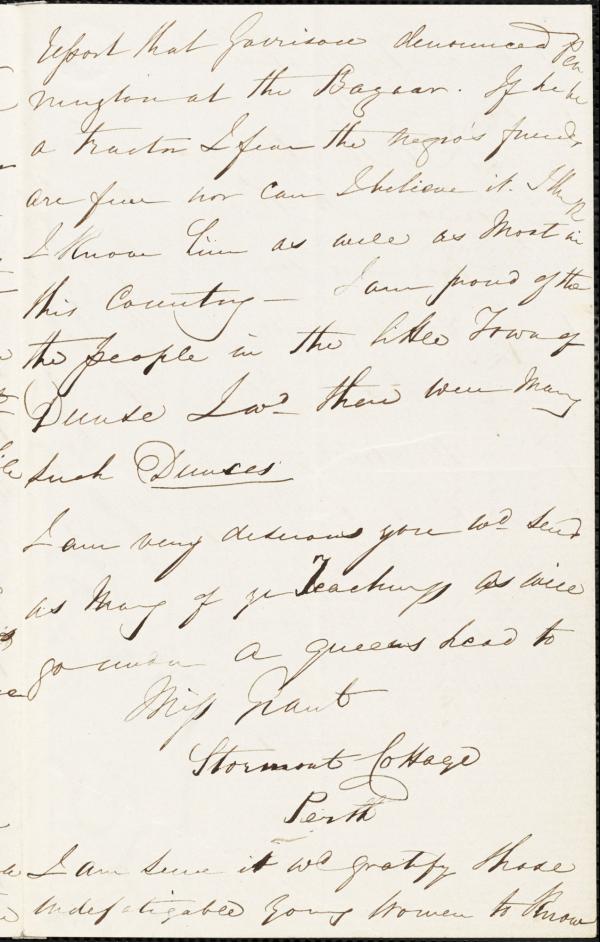 report that Garrison denounced Pen
nington at the Bazaar. If he be
a traitor I fear the negro's friends
are few nor can I believe it. I think
I Know him as well as Most in
this Country — I am proud of the
the people in the little Town of
Dunse I wd there were Many
such Dunses
I am very desirous you wd send
as Many of yr Teachings as will
go under a queens head to
Miss Grant
Stormont Cottage
Perth
I am sure it wd gratify those
indefatigable Young Women to Know